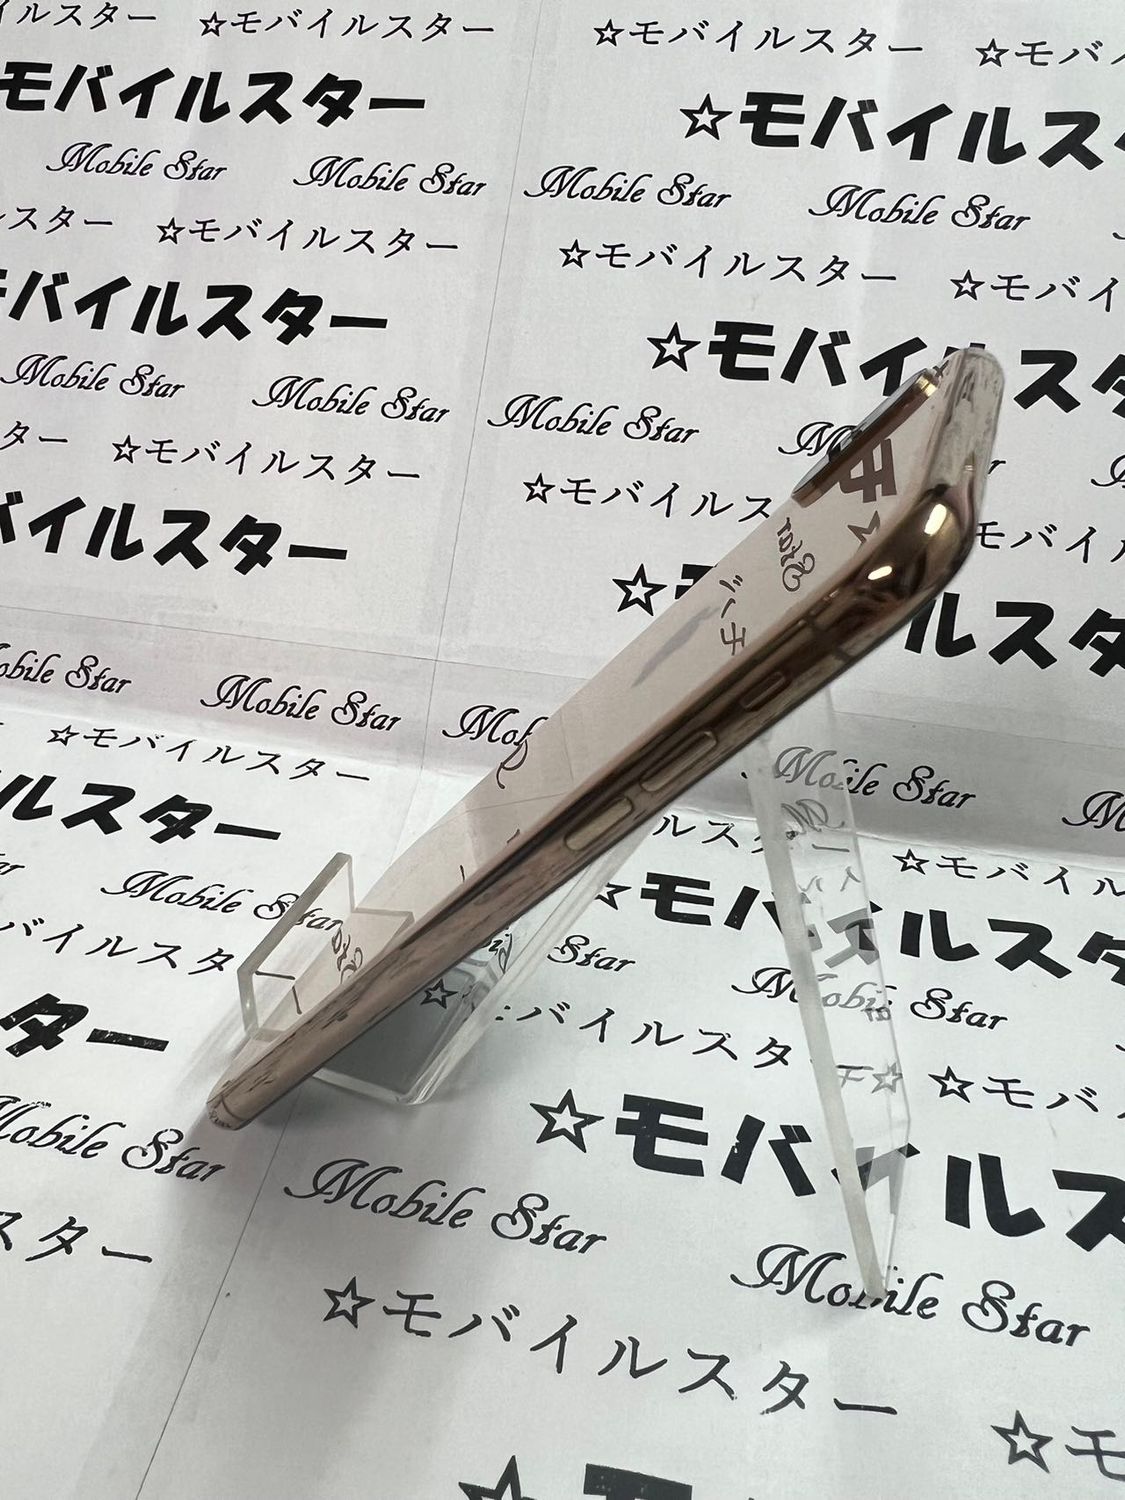 ☆モバイルスター ☆モバイルスター
モバイルスター ☆モバイルス
Mobile Star Mobile Star Mobile Star Mobile Star
スター ☆モバイルスター ☆モバイルスター ☆モバイ
バイルスター ☆モバイ スタ
Mobile Star Mobile Star Mobile Star
ター ☆モバイルスター ☆モバイルス モバイ
バイルスター ☆ ルスタ
Star Mobile Star
☆モバイルスター Mobile Star
ルスター ☆モバイル
Mobile Star ☆モバイルスタ
バイルスタ Star Mobile Star
ター バイルスタ ☆モバ
Mobile Star Mobile Star ☆モバイルス
スター Mobile Star
☆モバイルスター ☆モ